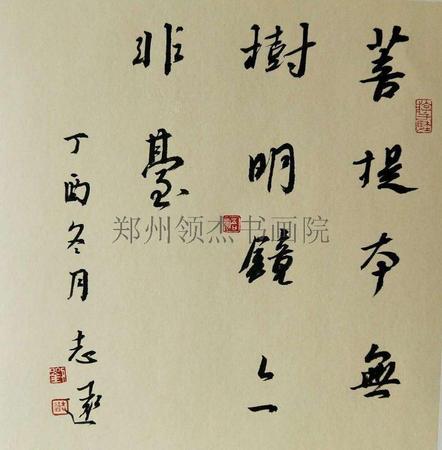 菩提本無
樹明鏡亦
非臺
丁酉冬月志遠
郑州领杰书画院